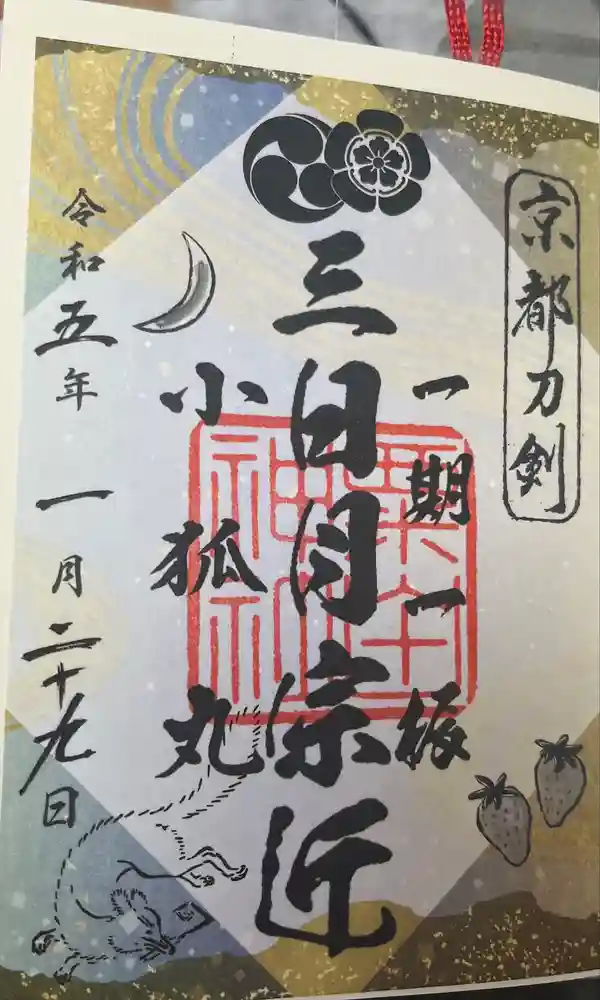 京都刀剣
一期一振
三日月宗近
小狐丸
令和五年一月二十九日